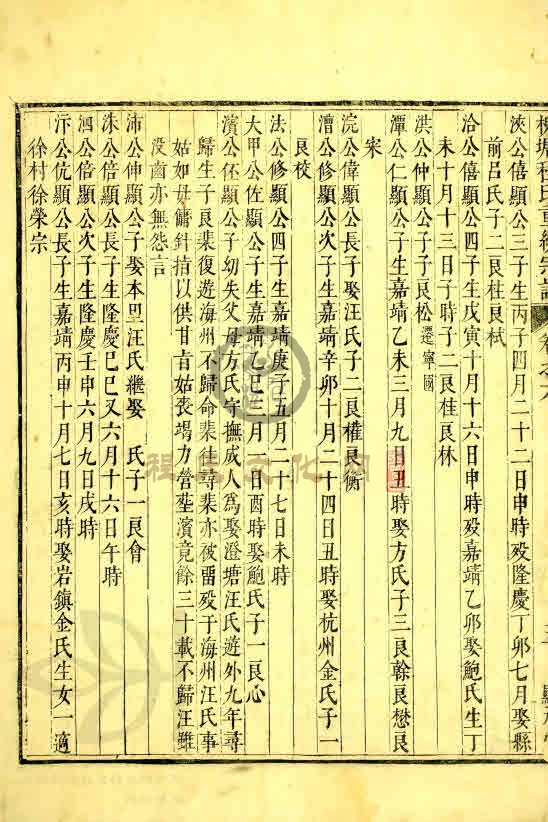 槐塘程氏重續宗譜 卷之六
浹公僖顯公三子生丙子四月二十二日申時殁隆慶丁卯七月娶縣
前呂氏子二良杜良栻
洽公僖顯公四子生戊寅十月十六日申時殁嘉靖乙卯娶鮑氏生丁
未十月十三日子時子二良桂良林
洪公仲顯公子子良松遷寧國
潭公仁顯公子生嘉靖乙未三月九日丑時娶方氏子三良榦良懋良
宋
浣公偉顯公長子娶汪氏子二良權良衡
漕公修顯公次子生嘉靖辛卯十月二十四日丑時娶杭州金氏子一
良校
法公修顯公四子生嘉靖庚子五月二十七日未時
大甲公佐顯公子生嘉靖乙巳三月一日酉時娶鮑氏子一良心
濱公伾顯公子幼失父母方氏守撫成人為娶澄塘汪氏遊外九年尋
歸生子良棐復遊海州不歸命棐往尋棐亦被畱殁于海州汪氏事
姑如母傭針指以供甘旨姑喪竭力營塟濱竟餘三十載不歸汪雖
没齒亦無怨言
沛公伸顯公子娶本里汪氏繼娶 氏子一良會
洙公倍顯公長子生隆慶己巳又六月十六日午時
泗公倍顯公次子生隆慶壬申六月九日戌時
汴公伉顯公長子生嘉靖丙申十月七日亥時娶岩鎮金氏生女一適
徐村徐榮宗
程氏文化網